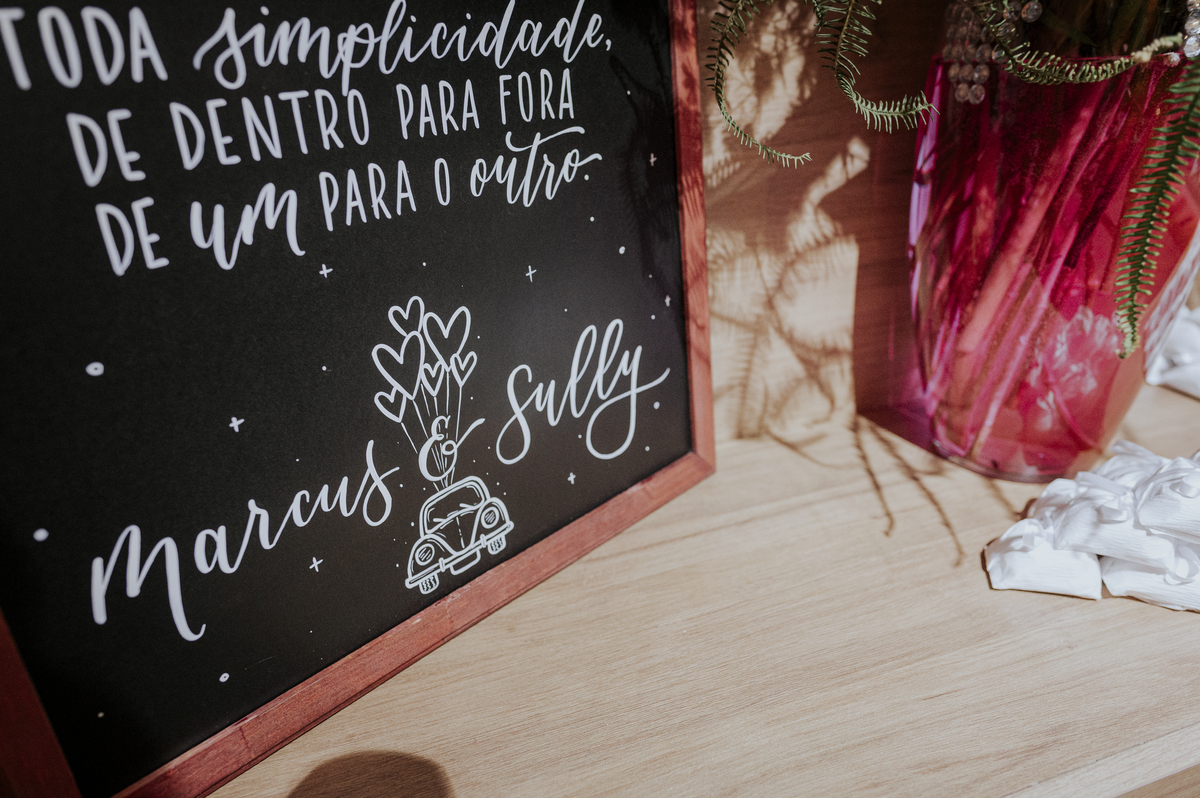 TODA simplicidade,
DE DENTRO PARA FORA
DE um PARA O outro.
Marcus & Sully